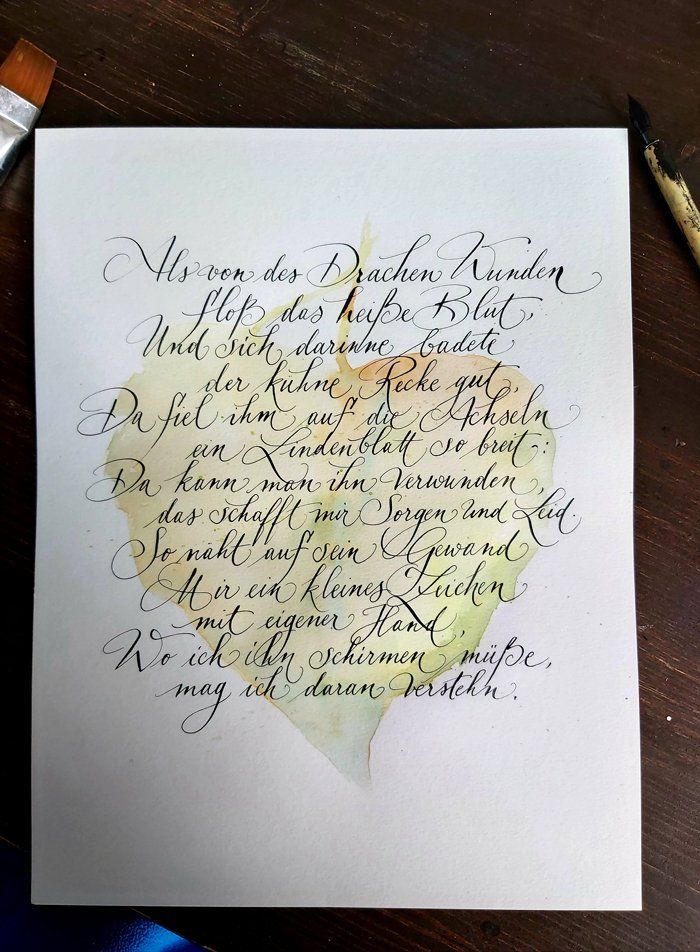 Als von des Drachen Wunden
floß das heiße Blut,
Und sich darinne badete
der kühne Recke gut,
Da fiel ihm auf die Achseln
ein Lindenblatt so breit:
Da kann man ihn verwunden,
das schafft mir Sorgen und Leid.
So näht auf sein Gewand
Mir ein kleines Zeichen
mit eigener Hand,
Wo ich ihn schirmen müße,
mag ich daran verstehn.